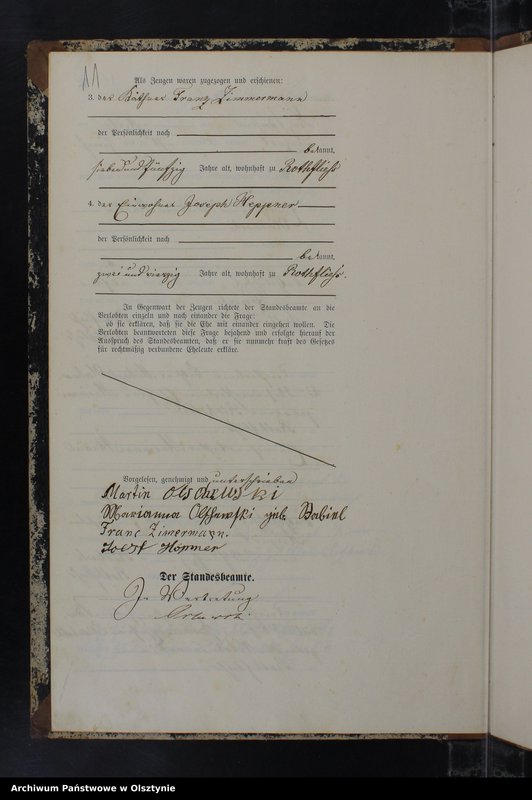 11
Als Zeugen waren zugezogen und erschienen:
3. der Käthner Franz Zimmermann
der Persönlichkeit nach
bekannt,
sieben und fünfzig Jahre alt, wohnhaft zu Rothfließ
4. der Einwohner Joseph Heppner
der Persönlichkeit nach
bekannt,
zwei und vierzig Jahre alt, wohnhaft zu Rothfließ.
In Gegenwart der Zeugen richtete der Standesbeamte an die
Verlobten einzeln und nach einander die Frage:
ob sie erklären, daß sie die Ehe mit einander eingehen wollen. Die
Verlobten beantworteten diese Frage bejahend und erfolgte hierauf der
Ausspruch des Standesbeamten, daß er sie nunmehr kraft des Gesetzes
für rechtmäßig verbundene Eheleute erkläre.
Vorgelesen, genehmigt und unterschrieben
Martin Olschewski
Marianna Olschewski geb.
Franc Zimermann.
Hopner
Der Standesbeamte.
In Vertretung
Archiwum Państwowe w Olsztynie